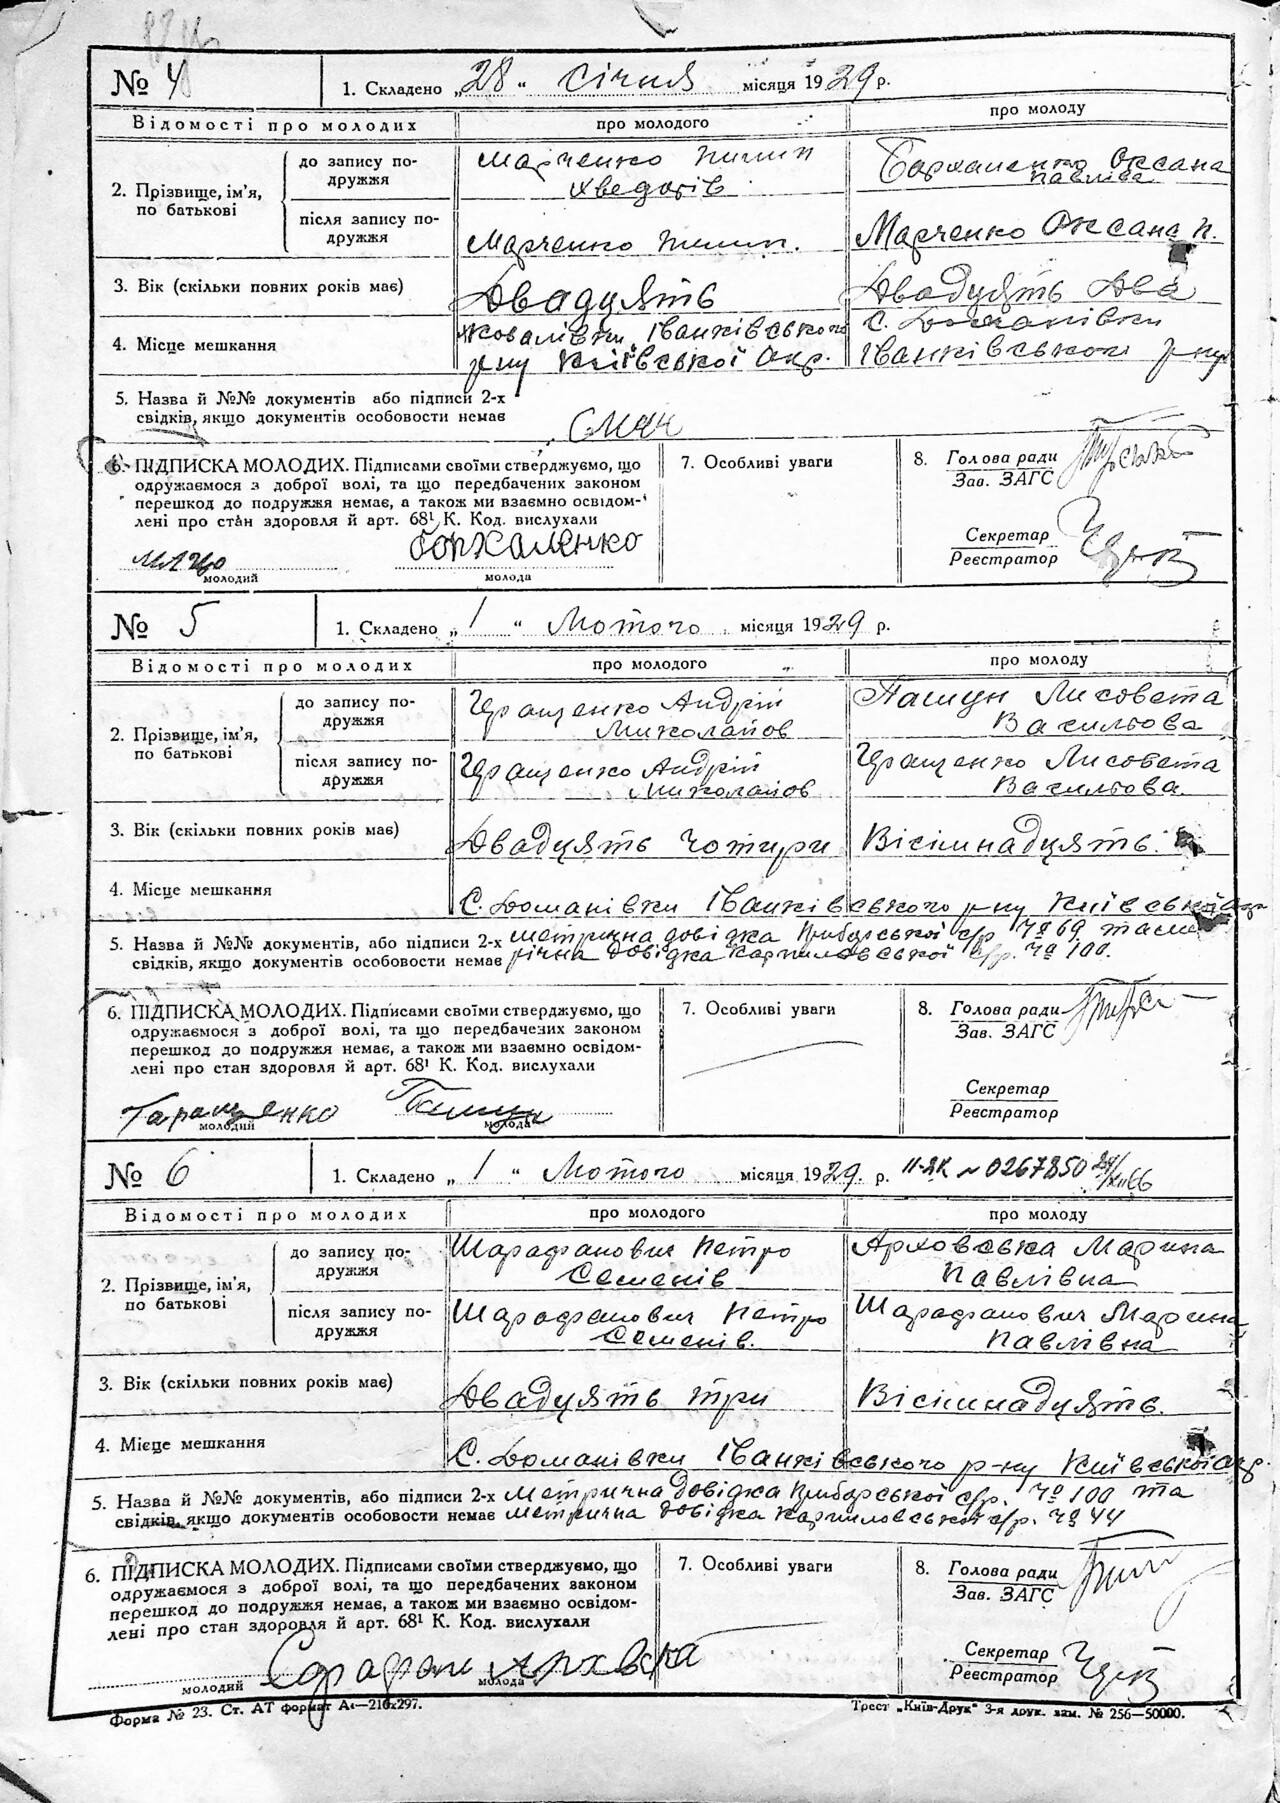 № 4 1. Складено „28“ січня місяця 1929 р.
Відомості про молодих про молодого про молоду
2. Прізвище, ім'я, по батькові
до запису подружжя Марченко Пилип Хведорів Пархаменко Оксана Павлівa
після запису подружжя Марченко Пилип. Марченко Оксана П.
3. Вік (скільки повних років має) Двадцять Двадцять два
4. Місце мешкання Іванківського с. Доманівки
р-ну Київської окр. Іванківського р-ну
5. Назва й №№ документів або підписи 2-х
свідків, якщо документів особовости немає
6. ПІДПИСКА МОЛОДИХ. Підписами своїми стверджуємо, що
одружаємося з доброї волі, та що передбачених законом
перешкод до подружжя немає, а також ми взаємно освідом-
лені про стан здоровля й арт. 68¹ К. Код. вислухали
молодий молода
7. Особливі уваги
8. Голова ради
Зав. ЗАГС
Секретар
Реєстратор
№ 5 1. Складено „1“ Лютого місяця 1929 р.
Відомості про молодих про молодого про молоду
2. Прізвище, ім'я, по батькові
до запису подружжя Геращенко Андрій Миколайов Пашун Лисовета Васильова
після запису подружжя Геращенко Андрій Миколайов Геращенко Лисовета Васильова.
3. Вік (скільки повних років має) Двадцять чотири Вісімнадцять.
4. Місце мешкання С. Доманівки Іванківського р-ну Київської окр
5. Назва й №№ документів, або підписи 2-х метрична довідка Прибарської с/р № 69 та
свідків, якщо документів особовости немає довідка Карпиловської с/р. № 100.
6. ПІДПИСКА МОЛОДИХ. Підписами своїми стверджуємо, що
одружаємося з доброї волі, та що передбачених законом
перешкод до подружжя немає, а також ми взаємно освідом-
лені про стан здоровля й арт. 68¹ К. Код. вислухали
Геращенко
молодий молода
7. Особливі уваги
8. Голова ради
Зав. ЗАГС
Секретар
Реєстратор
№ 6 1. Складено „1“ Лютого місяця 1929. р. II-ЯК № 0267850 24/XII 66
Відомості про молодих про молодого про молоду
2. Прізвище, ім'я, по батькові
до запису подружжя Шарафанович Петро Семенів Арховська Марина Павлівна
після запису подружжя Шарафанович Петро Семенів. Шарафанович Марина Павлівна
3. Вік (скільки повних років має) Двадцять три Вісімнадцять.
4. Місце мешкання С. Доманівки Іванківського р-ну Київської окр.
5. Назва й №№ документів, або підписи 2-х метрична довідка Прибарської с/р. № 100 та
свідків, якщо документів особовости немає метрична довідка Карпиловської с/р. № 44
6. ПІДПИСКА МОЛОДИХ. Підписами своїми стверджуємо, що
одружаємося з доброї волі, та що передбачених законом
перешкод до подружжя немає, а також ми взаємно освідом-
лені про стан здоровля й арт. 68¹ К. Код. вислухали
молодий молода
7. Особливі уваги
8. Голова ради
Зав. ЗАГС
Секретар
Реєстратор
Форма № 23. Ст. АТ формат А₄—210х297. Трест „Київ-Друк“ 3-я друк. зам. № 256—50000.